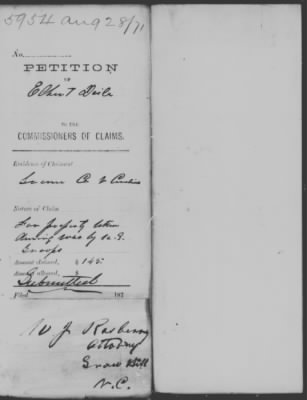 5954 Aug 28/71
No.
PETITION
OF
Elbert
TO THE
COMMISSIONERS OF CLAIMS.
Residence of Claimant
Nature of Claim
For property taken
during war by U.S.
Troops
Amount claimed, $ 145
Amount allowed, $
Submitted
Filed 187
W J Rasberry
Attorney
Snow Hill
N.C.